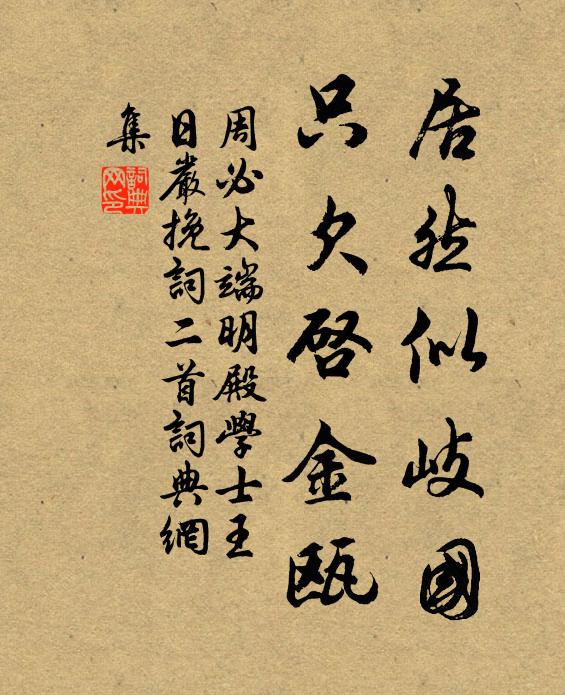 居然似歧國
只欠啓金甌
周必大端明殿學士王
日嚴挽詞二首詞典網
集
詞典
网印